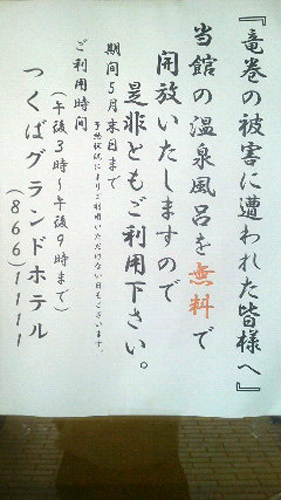 『竜巻の被害に遭われた皆様へ』
当館の温泉風呂を無料で
開放いたしますので
是非ともご利用下さい。
期間5月末日まで
予約状況によりご利用いただけない日もございます。
ご利用時間
(午後3時～午後9時まで)
つくばグランドホテル
(866)1111